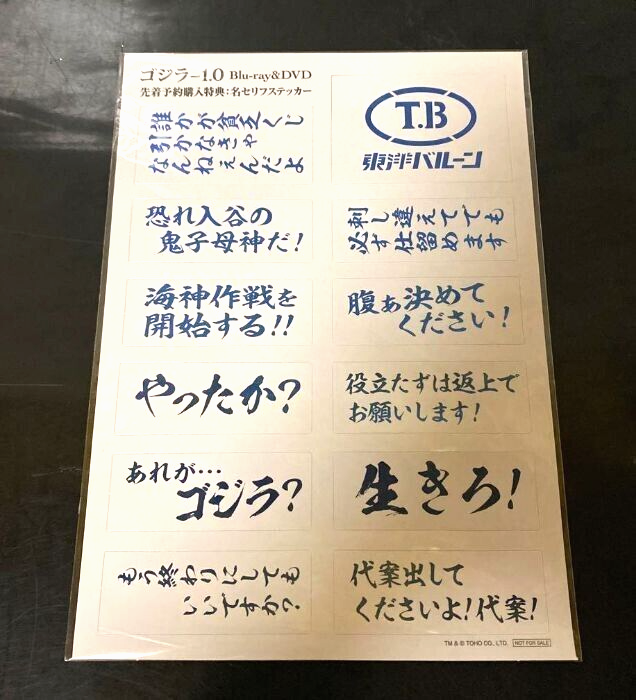 ゴジラ-1.0 Blu-ray&DVD
先着予約購入特典:名セリフステッカー
誰かが貧乏くじ
引かなきゃ
なんねぇんだよ
T.B
東洋バルーン
恐れ入谷の
鬼子母神だ!
刺し違えてでも
必ず仕留めます
海神作戦を
開始する!!
腹ぁ決めて
ください!
やったか?
役立たずは返上で
お願いします!
あれが…
ゴジラ?
生きろ!
もう終わりにしても
いいですか?
代案出して
くださいよ!代案!
TM & © TOHO CO., LTD. NOT FOR SALE